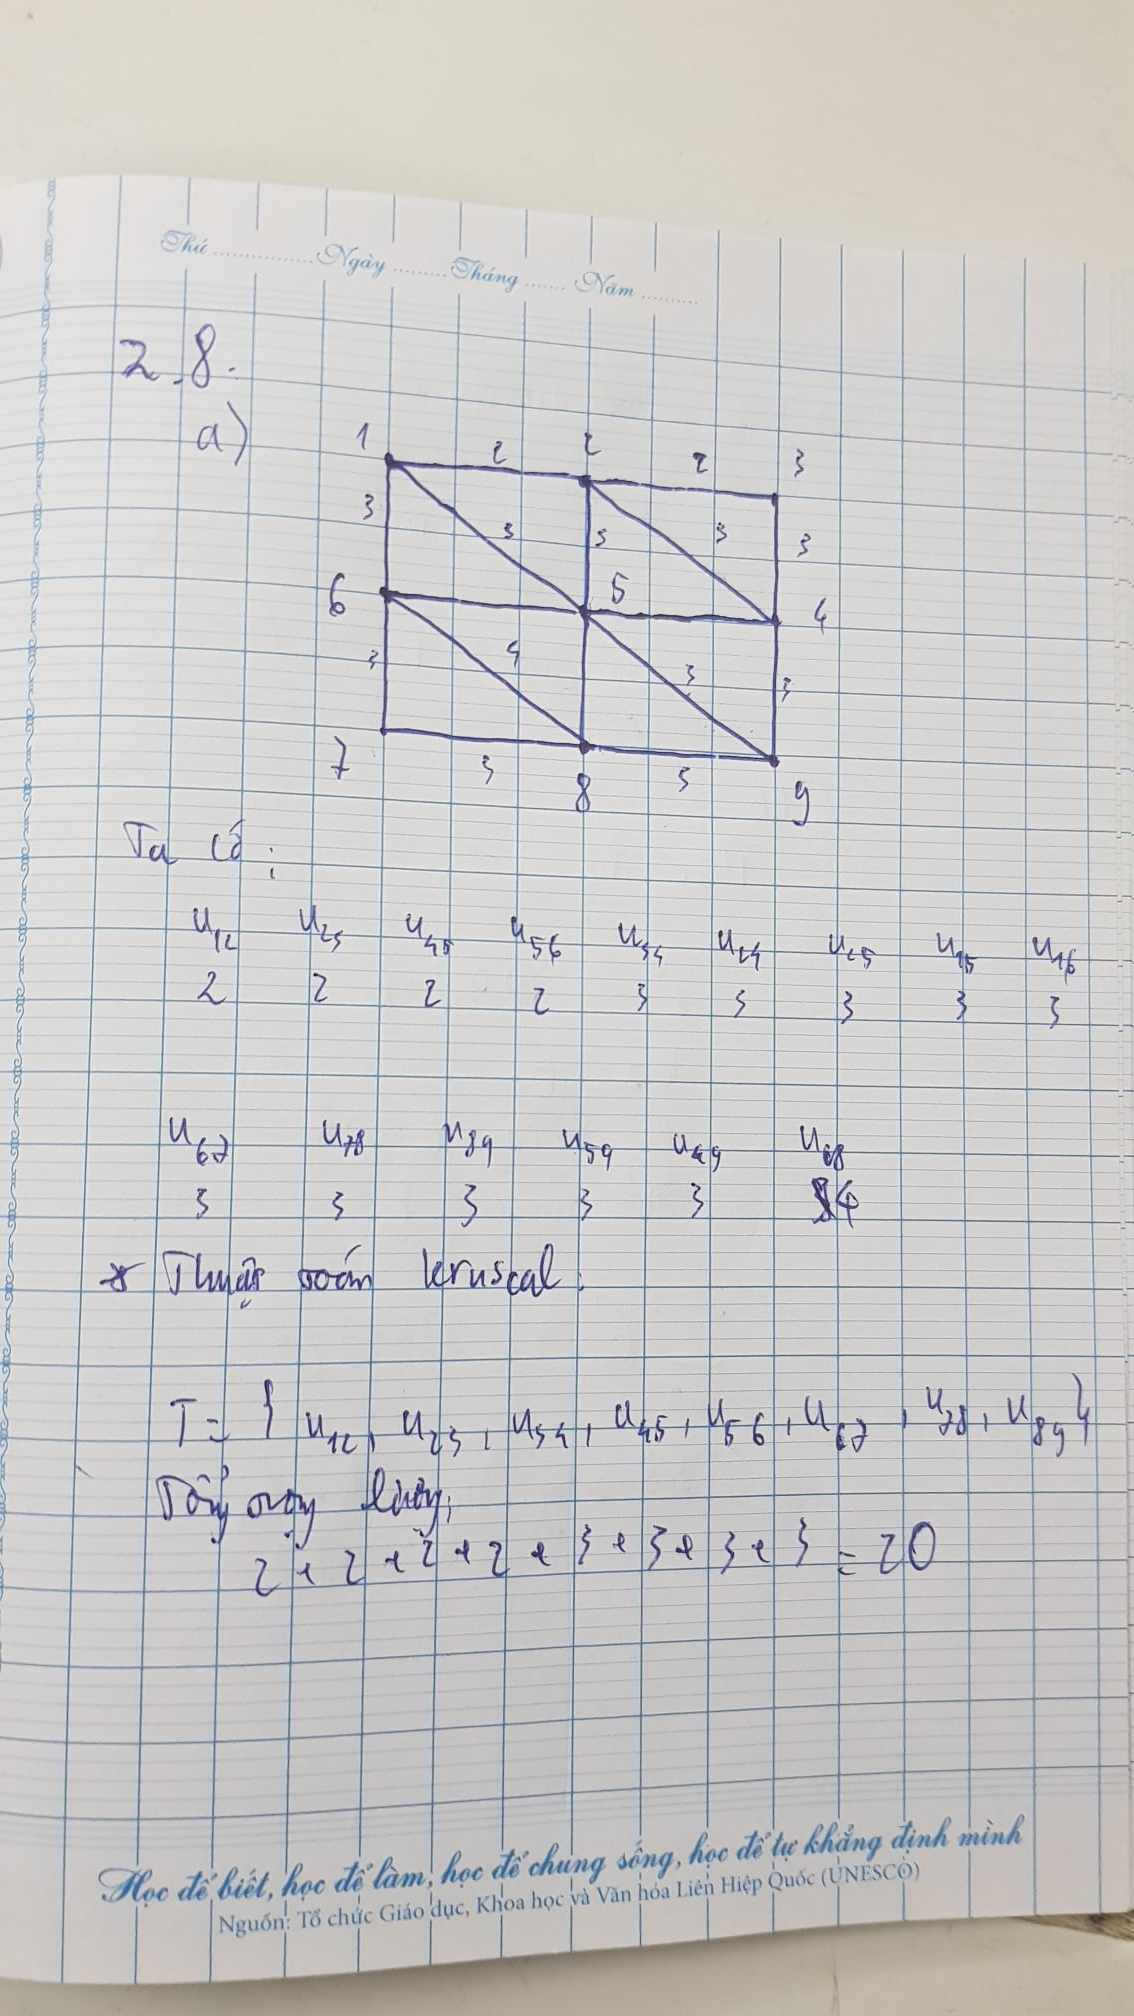 Thứ ............... Ngày ......... Tháng ...... Năm .........
2.8.
a)
1 2 2 2 3
3 3 3 3 3
6 5 4
3 4 3 3
7 3 8 3 9
Ta có:
u12 u23 u45 u56 u34 u24 u25 u15 u16
2 2 2 2 3 3 3 3 3
u67 u78 u89 u59 u49 u68
3 3 3 3 3 4
* Thuật toán kruscal.
T = { u12, u23, u34, u45, u56, u67, u78, u89 }
Tổng trọng lượng:
2 + 2 + 2 + 2 + 3 + 3 + 3 + 3 = 20
Học để biết, học để làm, học để chung sống, học để tự khẳng định mình
Nguồn: Tổ chức Giáo dục, Khoa học và Văn hóa Liên Hiệp Quốc (UNESCO)